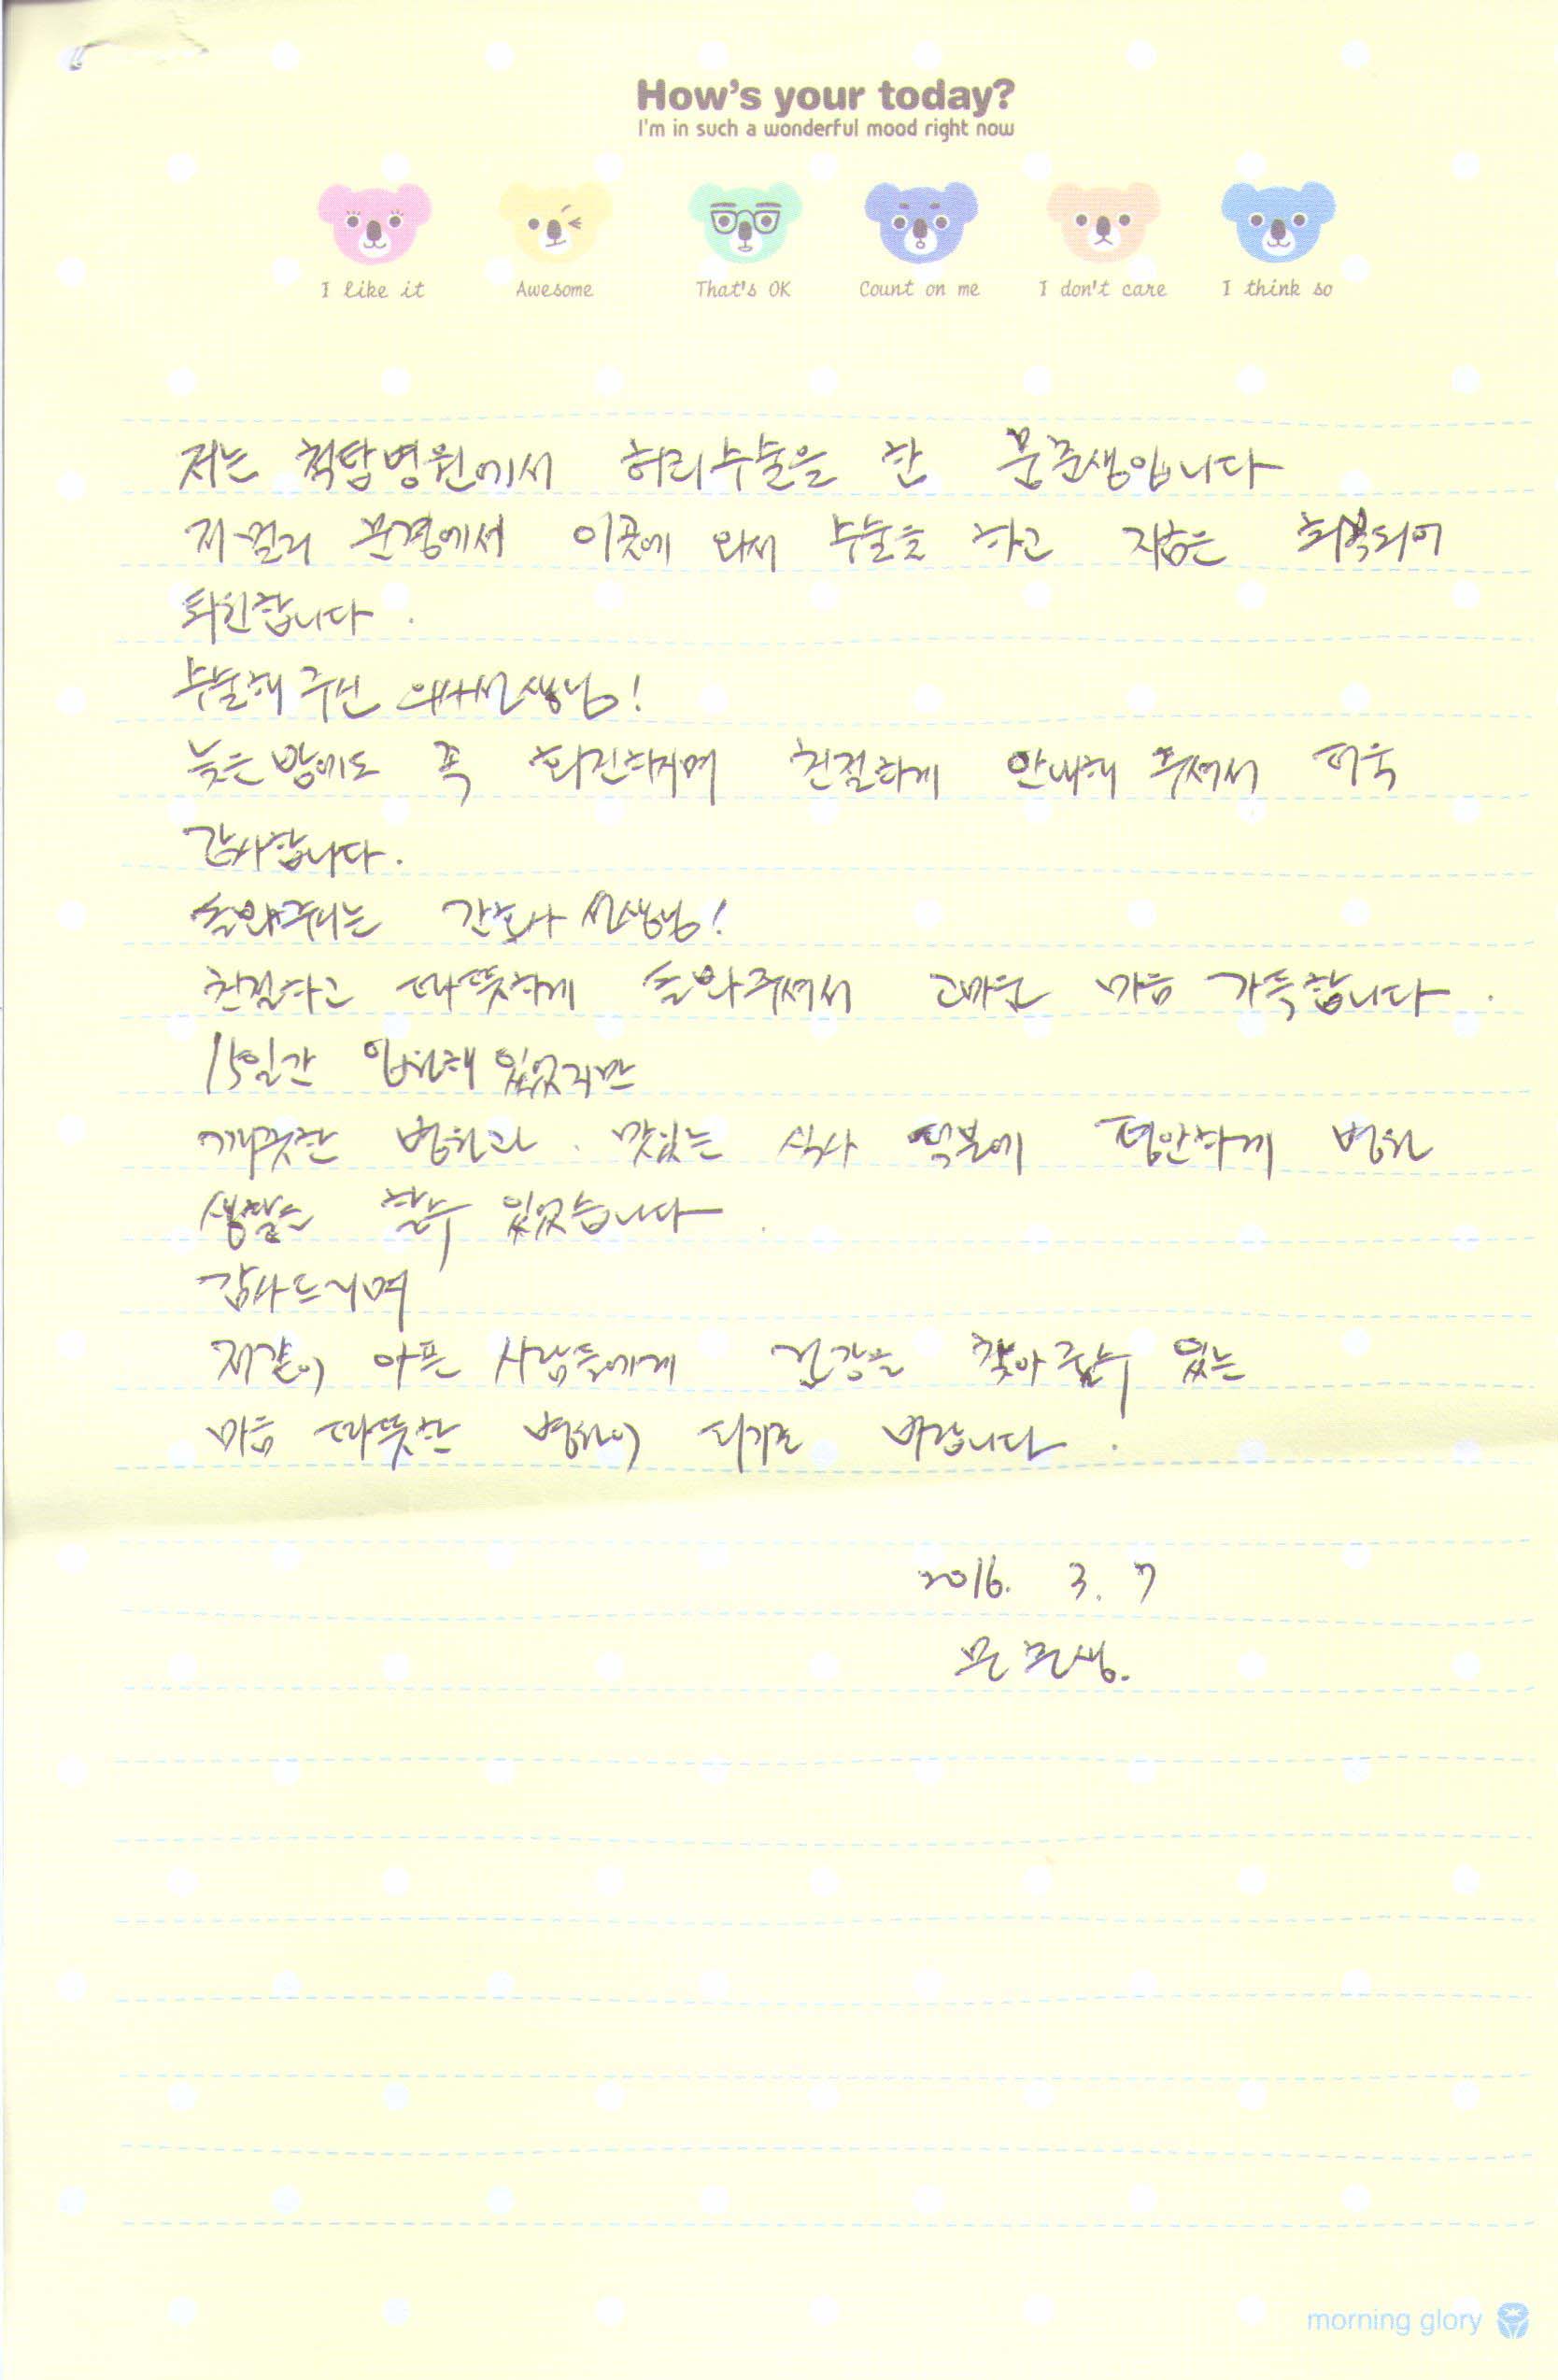 How's your today?
I'm in such a wonderful mood right now
I like it Awesome That's OK Count on me I don't care I think so
저는 척탑병원에서 허리수술을 한 문준생입니다
저 멀리 문경에서 이곳에 와서 수술을 하고 지금은 회복되어
퇴원합니다.
수술해 주신 의사선생님!
늦은 밤에도 꼭 회진하시며 친절하게 안내해 주셔서 더욱
감사합니다.
돌봐주시는 간호사 선생님!
친절하고 따뜻하게 돌봐주셔서 고마운 마음 가득합니다.
15일간 입원해 있었지만
깨끗한 병원과 맛있는 식사 덕분에 편안하게 병원
생활을 할수 있었습니다.
감사드리며
저같이 아픈 사람들에게 건강을 찾아 줄수 있는
마음 따뜻한 병원이 되기를 바랍니다.
2016. 3. 7
문준생.
morning glory